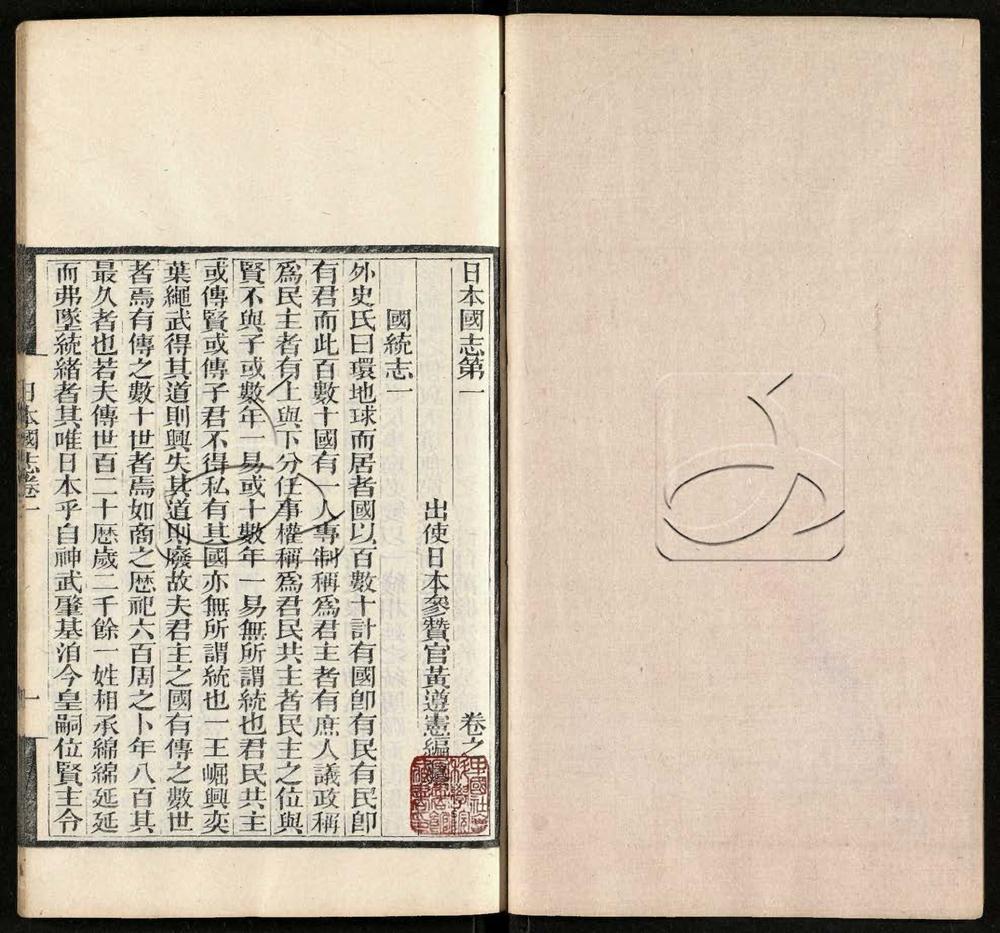 日本國志第一 卷之
出使日本參贊官黃遵憲編
國統志一
外史氏曰環地球而居者國以百數十計有國卽有民有民卽
有君而此百數十國有一人專制稱爲君主者有庶人議政稱
爲民主者有上與下分任事權稱爲君民共主者民主之位與
賢不與子或數年一易或十數年一易無所謂統也君民共主
或傳賢或傳子君不得私有其國亦無所謂統也一王崛興奕
葉繩武得其道則興失其道則廢故夫君主之國有傳之數世
者焉有傳之數十世者焉如商之歷祀六百周之卜年八百其
最久者也若夫傳世百二十歷歲二千餘一姓相承綿綿延延
而弗墜統緒者其唯日本乎自神武肇基洎今皇嗣位賢主令
日本國志卷一
一